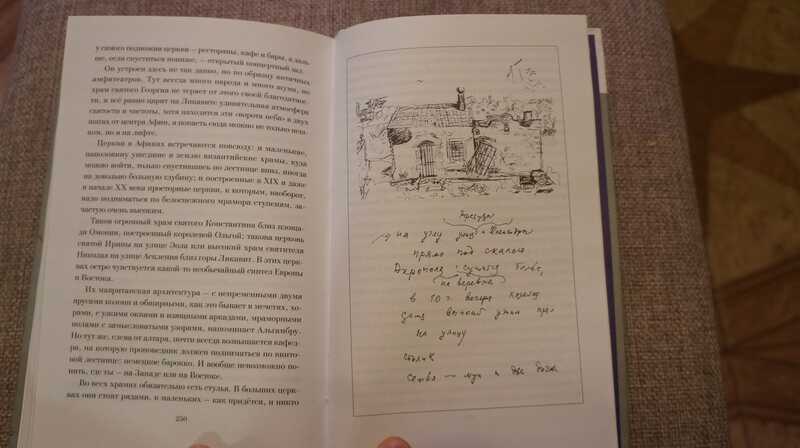 у самого подножия церкви — рестораны, кафе и бары, а даль-
ше, если спуститься пониже, — открытый концертный зал.
Он устроен здесь не так давно, но по образцу античных
амфитеатров. Тут всегда много народа и много шума, но
храм святого Георгия не теряет от этого своей благодатнос-
ти, и всё равно царит на Ликавите удивительная атмосфера
святости и чистоты, хотя находятся эти «ворота неба» в двух
шагах от центра Афин, и попасть сюда можно не только пеш-
ком, но и на лифте.
Церкви в Афинах встречаются повсюду: и маленькие,
наполовину ушедшие в землю византийские храмы, куда
можно войти, только спустившись по лестнице вниз, иногда
на довольно большую глубину; и построенные в XIX и даже
в начале XX века просторные церкви, к которым, наоборот,
надо подниматься по белоснежного мрамора ступеням, за-
частую очень высоким.
Таков огромный храм святого Константина близ площа-
ди Омония, построенный королевой Ольгой; такова церковь
святой Ирины на улице Эола или высокий храм святителя
Николая на улице Асклепия близ горы Ликавит. В этих церк-
вах остро чувствуется какой-то необычайный синтез Европы
и Востока.
Их мавританская архитектура — с непременными двумя
ярусами колонн и обширными, как это бывает в мечетях, хо-
рами, с узкими окнами и изящными аркадами, мраморными
полами с замысловатыми узорами, напоминает Альгамбру.
Но тут же, слева от алтаря, почти всегда возвышается кафед-
ра, на которую проповедник должен подниматься по винто-
вой лестнице: немецкое барокко. И вообще невозможно по-
нять, где ты — на Западе или на Востоке.
Во всех храмах обязательно есть стулья. В больших церк-
вах они стоят рядами, в маленьких — как придётся, и никто
250
на углу улиц
прямо под скалою
Акрополя сушится белье,
на веревке
в 10 ч. вечера
ужин
на улицу
столик
Семья — муж и две